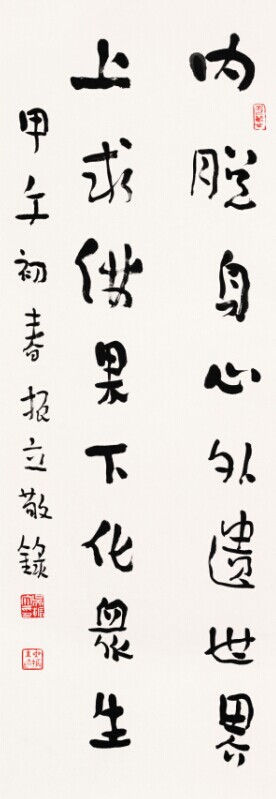 内脱身心外遗世界
上求佛果下化众生
甲午初春振立敬録